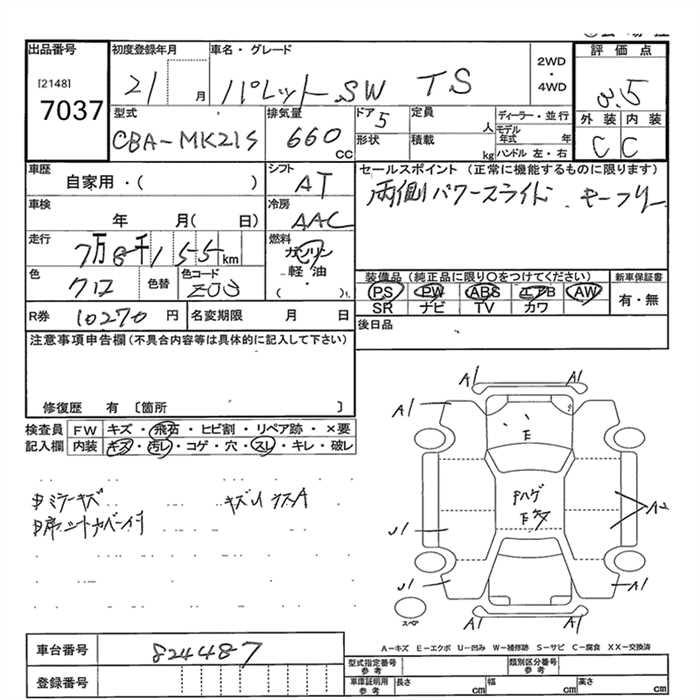 出品番号
[2148]
7037
初度登録年月
21 月
車名・グレード
パレット SW TS
2WD
・
4WD
評価点
3.5
外装 内装
C C
型式
CBA-MK21S
排気量
660 cc
ドア 5
形状
定員 人
積載 kg
ディーラー・並行
モデル年式 年
ハンドル 左・右
車歴
自家用・( )
シフト
AT
車検
年 月( 日)
冷房
AAC
走行
7万8千155km
燃料
ガソリン
軽・油
( )
色
クロ
色替
色コード
ZJ3
R券 10270円
名変期限 月 日
セールスポイント (正常に機能するものに限ります)
両側パワースライド キーフリー
装備品 (純正品に限り〇をつけてください)
PS PW ABS エアB AW
SR ナビ TV カワ
新車保証書
有・無
後日品
注意事項申告欄(不具合内容等は具体的に記入して下さい)
修復歴 有 〔箇所 〕
検査員記入欄
FW キズ・飛石・ヒビ割・リペア跡・×要
内装 キズ・汚レ・コゲ・穴・スレ・キレ・破レ
A1 A1
A1
E
Pハゲ
A2
U1
U1 A1
A1 A1
スペア
A-キズ E-エクボ U-凹み W-補修跡 S-サビ C-腐食 XX-交換済
車台番号
824487
登録番号
型式指定番号
参考
類別区分番号
参考
車庫証明用
参考
長さ cm
幅 cm
高さ cm